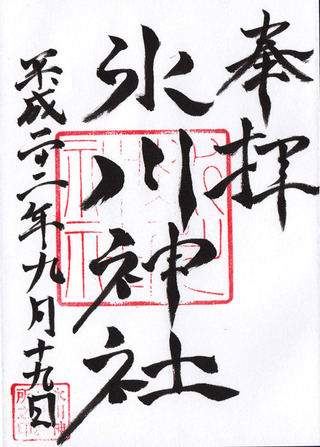 奉拝
氷川神社
平成二十二年九月十九日